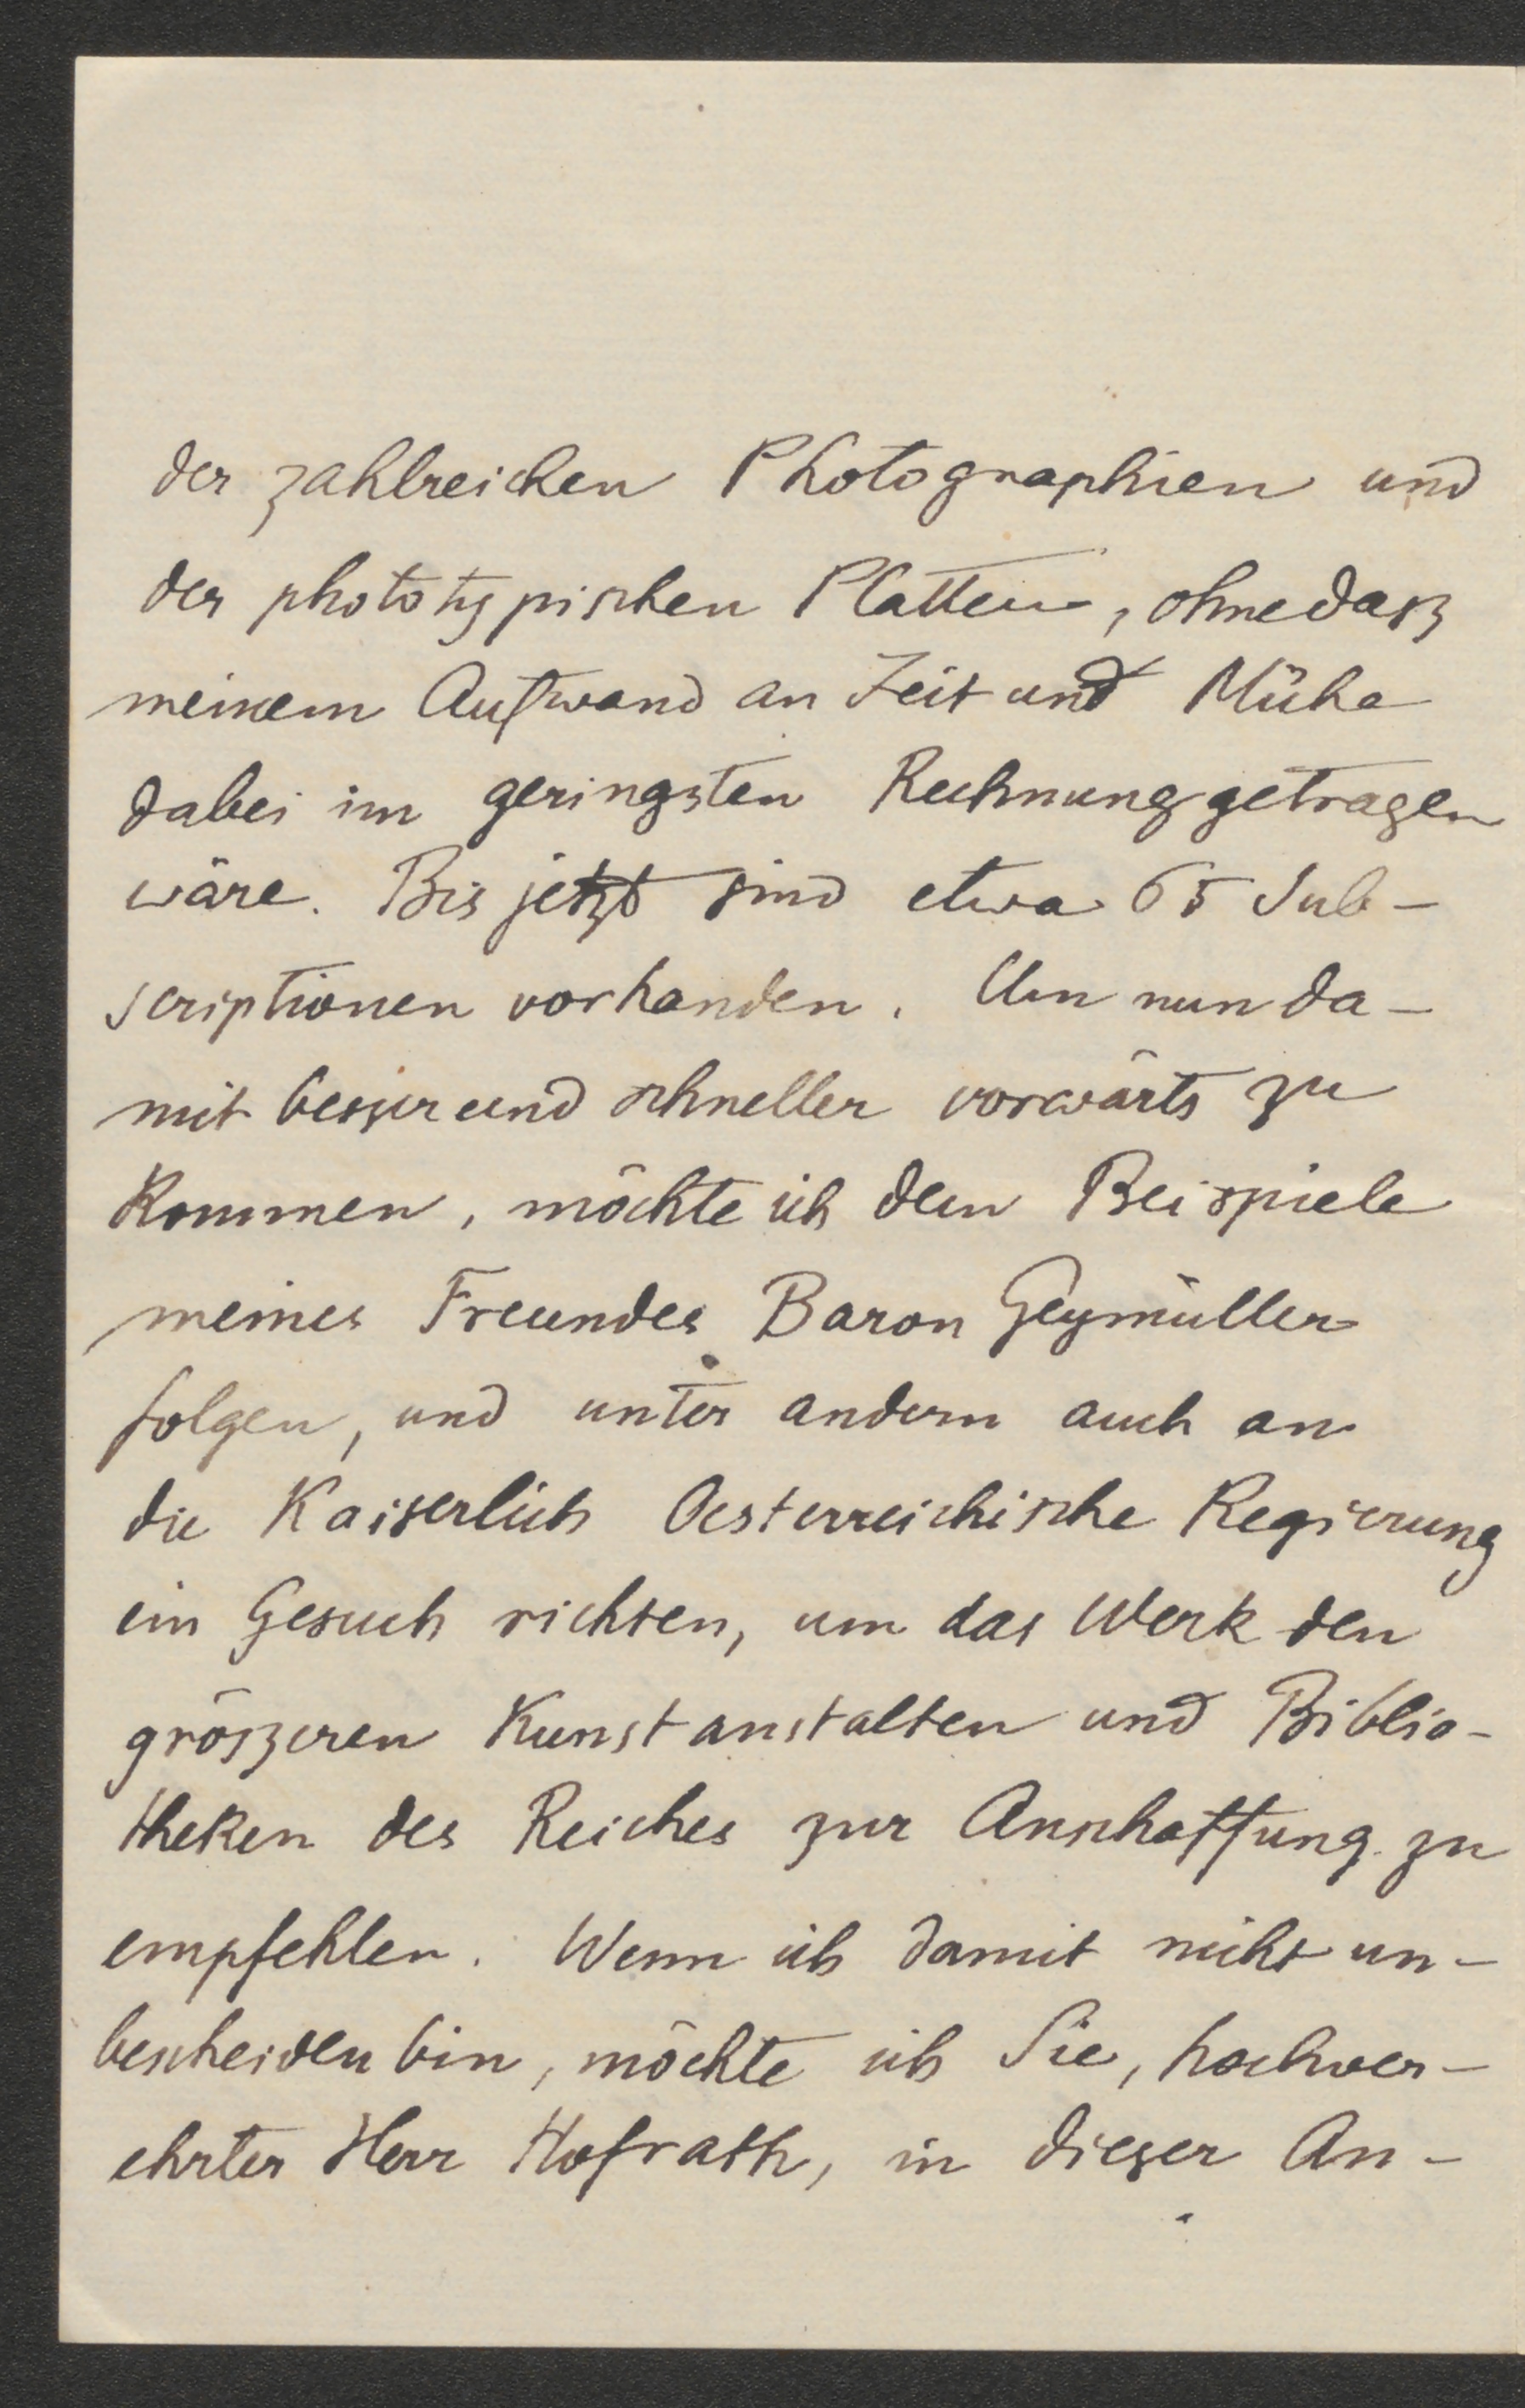 der zahlreichen Photographien und
der phototypischen Platten, ohne dasz
meinem Aufwand an Zeit und Mühe
dabei im geringsten Rechnung getragen
wäre. Bis jetzt sind etwa 65 Sub-
scriptionen vorhanden. Um nun da-
mit besser und schneller vorwärts zu
kommen, möchte ich dem Beispiele
meines Freundes Baron Geymüller
folgen, und unter andern auch an
die Kaiserlich Oesterreichische Regierung
ein Gesuch richten, um das Werk den
gröszeren Kunstanstalten und Biblio-
theken des Reiches zur Anschaffung zu
empfehlen. Wenn ich damit nicht un-
bescheiden bin, möchte ich Sie, hochver-
ehrter Herr Hofrath, in dieser An-